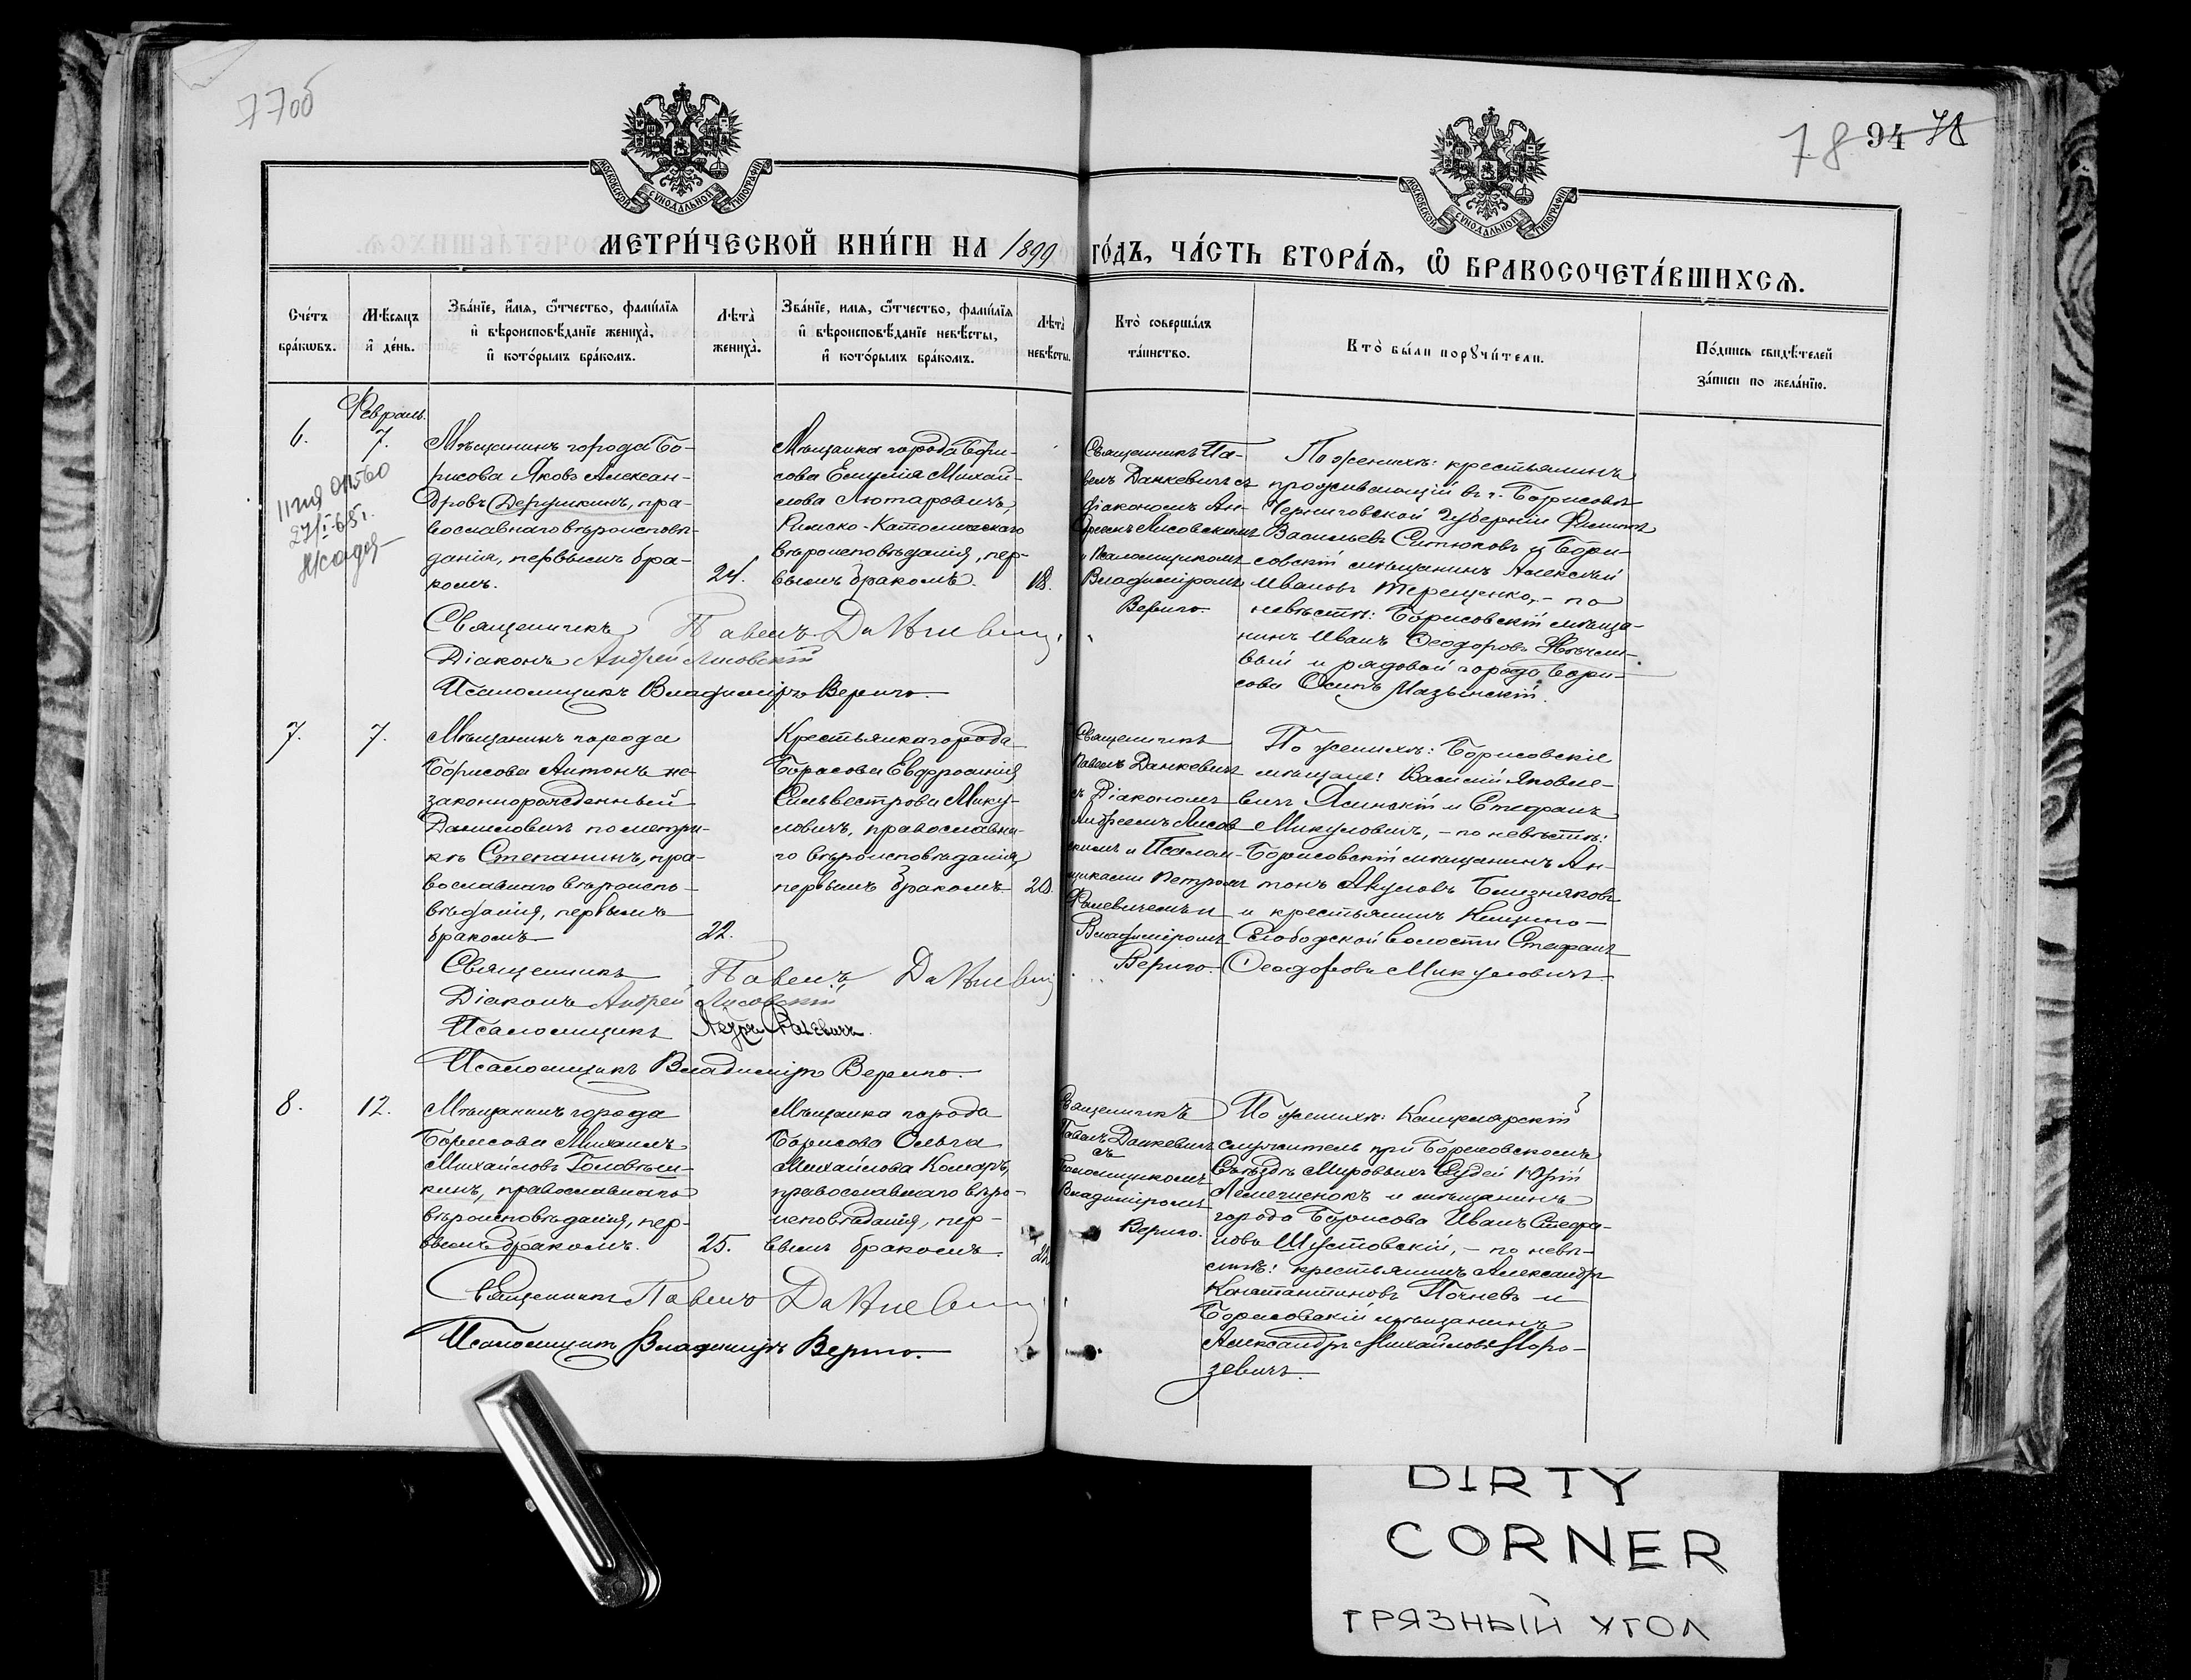 77об
78 94 78
МОСКОВСКОЙ СѴНОДАЛЬНОЙ ТИПОГРАФІИ
МОСКОВСКОЙ СѴНОДАЛЬНОЙ ТИПОГРАФІИ
МЕТРИ́ЧЕСКОЙ КНИ́ГИ НА 1899 ГО́ДЪ, ЧА́СТЬ ВТОРА́Я, Ѽ БРАКОСОЧЕТА́ВШИХСЯ.
Сче́тъ
бра́кѡвъ.
Мѣ́сяцъ
и҆ де́нь.
Зва́нїе, и҆́мя, ѻ҆́тчество, фами́лїя
и҆ вѣроисповѣ́данїе жениха̀,
и҆ кото́рымъ бра́комъ.
Лѣта̀
жениха̀.
Зва́нїе, и҆́мя, ѻ҆́тчество, фами́лїя
и҆ вѣроисповѣ́данїе невѣ́сты,
и҆ кото́рымъ бра́комъ.
Лѣта̀
невѣ́сты.
Кто̀ соверша́лъ
та́инство.
Кто̀ бы́ли порꙋчи́тели.
По́дпись свидѣ́телей
за́писи по жела́нїю.
Февраль.
6.
7.
27/I-65г.
Мѣщанинъ города Бо-
рисова Яковъ Алексан-
дровъ Дерушкинъ, пра-
вославнаго вѣроисповѣ-
данія, первымъ бра-
комъ.
24.
Мѣщанка города Бори-
сова Емилія Михай-
лова Лютаровичъ,
Римско-Католическаго
вѣроисповѣданія, пер-
вымъ бракомъ.
18.
Священникъ Па-
велъ Данкевичъ съ
діакономъ Ан-
дреемъ Лисовскимъ
и Псаломщикомъ
Владиміромъ
Вериго.
По женихѣ: крестьянинъ
проживающій въ г. Борисовѣ
Черниговской Губерніи Филиппъ
Васильевъ Ситюковъ и Бори-
совскій мѣщанинъ Алексѣй
Ивановъ Терещенко, - по
невѣстѣ: Борисовскій мѣща-
нинъ Иванъ Ѳеодоровъ
и рядовой города Бори-
сова Осипъ Мазынскій.
Священникъ Павелъ Данкевичъ
Діаконъ Андрей Лисовскій
Псаломщикъ Владиміръ Вериго.
7.
7.
Мѣщанинъ города
Борисова Антонъ не-
законнорожденный
Даниловичъ по метри-
кѣ Степанинъ, пра-
вославнаго вѣроиспо-
вѣданія, первымъ
бракомъ
22.
Крестьянка города
Борисова Евфросинія
Сильвестрова Мику-
ловичъ, православна-
го вѣроисповѣданія,
первымъ бракомъ
20.
Священникъ
Павелъ Данкевичъ
съ Діакономъ
Андреемъ Лисов
скимъ и Псалом-
щиками Петромъ
Фалевичемъ и
Владиміромъ
Вериго.
По женихѣ: Борисовскіе
мѣщане: Василій Яковле-
вичъ Ясинскій и Стефанъ
Микуловичъ, - по невѣстѣ:
Борисовскій мѣщанинъ Ан-
тонъ Акуловъ Близняковъ
и крестьянинъ
Слободской волости Стефанъ
Ѳеодоровъ Микуловичъ.
Священникъ Павелъ Данкевичъ
Діаконъ Андрей Лисовскій
Псаломщикъ Петръ Фалевичъ.
Псаломщикъ Владиміръ Вериго.
8.
12.
Мѣщанинъ города
Борисова Михаилъ
Михайловъ Головѣш-
кинъ, православнаго
вѣроисповѣданія, пер-
вымъ бракомъ.
25.
Мѣщанка города
Борисова Ольга
Михайлова Комаръ,
православнаго вѣро-
исповѣданія, пер-
вымъ бракомъ.
Священникъ
Павелъ Данкевичъ
съ
Псаломщикомъ
Владиміромъ
Вериго.
По женихѣ: Канцелярскій
служитель при Борисовскомъ
Съѣздѣ Мировыхъ Судей Юрій
Лемешенокъ и мѣщанинъ
города Борисова Иванъ Стефа-
новъ Шустовскій, - по невѣ-
стѣ: крестьянинъ Александръ
Константиновъ Почневъ и
Борисовскій мѣщанинъ
Александръ Михайловъ Моро-
зевичъ.
Священникъ Павелъ Данкевичъ
Псаломщикъ Владиміръ Вериго.
DIRTY
CORNER
ГРЯЗНЫЙ УГОЛ